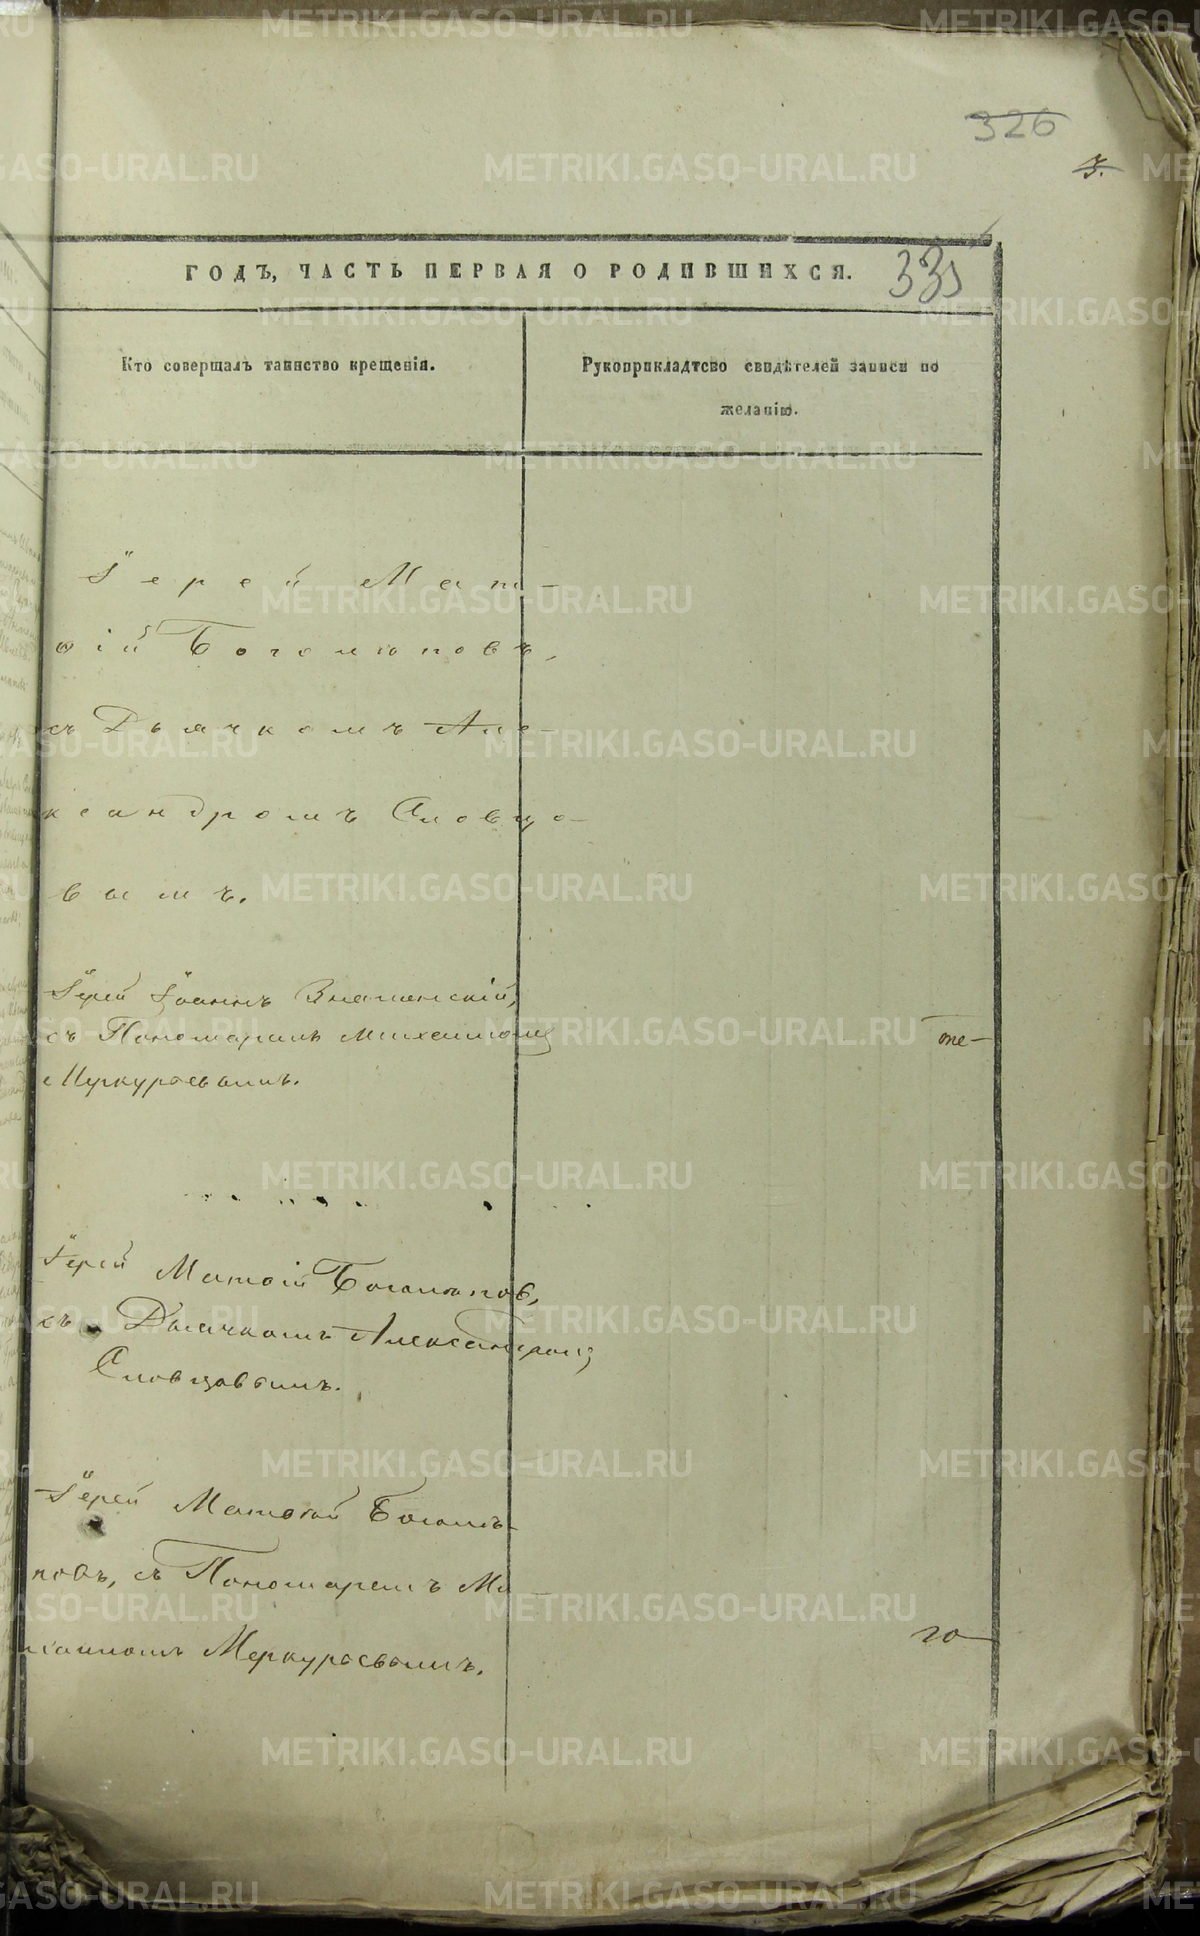 326
3.
ГОДЪ, ЧАСТЬ ПЕРВАЯ О РОДИВШИХСЯ.
335
Кто совершалъ таинство крещенія.
Рукоприкладтсво свидѣтелей записи по
желанію.
Іерей Мат-
ѳій Боголюповъ,
съ Дьячкомъ Але-
ксандромъ Словцо-
вымъ.
Іерей Іоаннъ Знаменскій,
съ Пономаремъ Михаиломъ
Меркурьевымъ.
Іерей Матѳій Боголюпов,
съ Дьячкомъ Александромъ
Словцовымъ.
Іерей Матѳій Боголю-
повъ, съ Пономаремъ Ми-
хаиломъ Меркурьевымъ.
го
METRIKI.GASO-URAL.RU